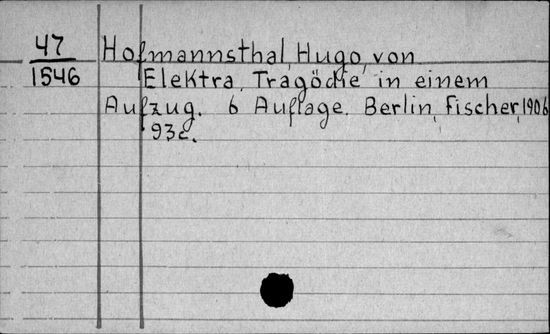 47
1546
Hofmannsthal, Hugo, von
Elektra, Tragödie in einem
Aufzug. 6 Auflage. Berlin, Fischer, 1906
93c.